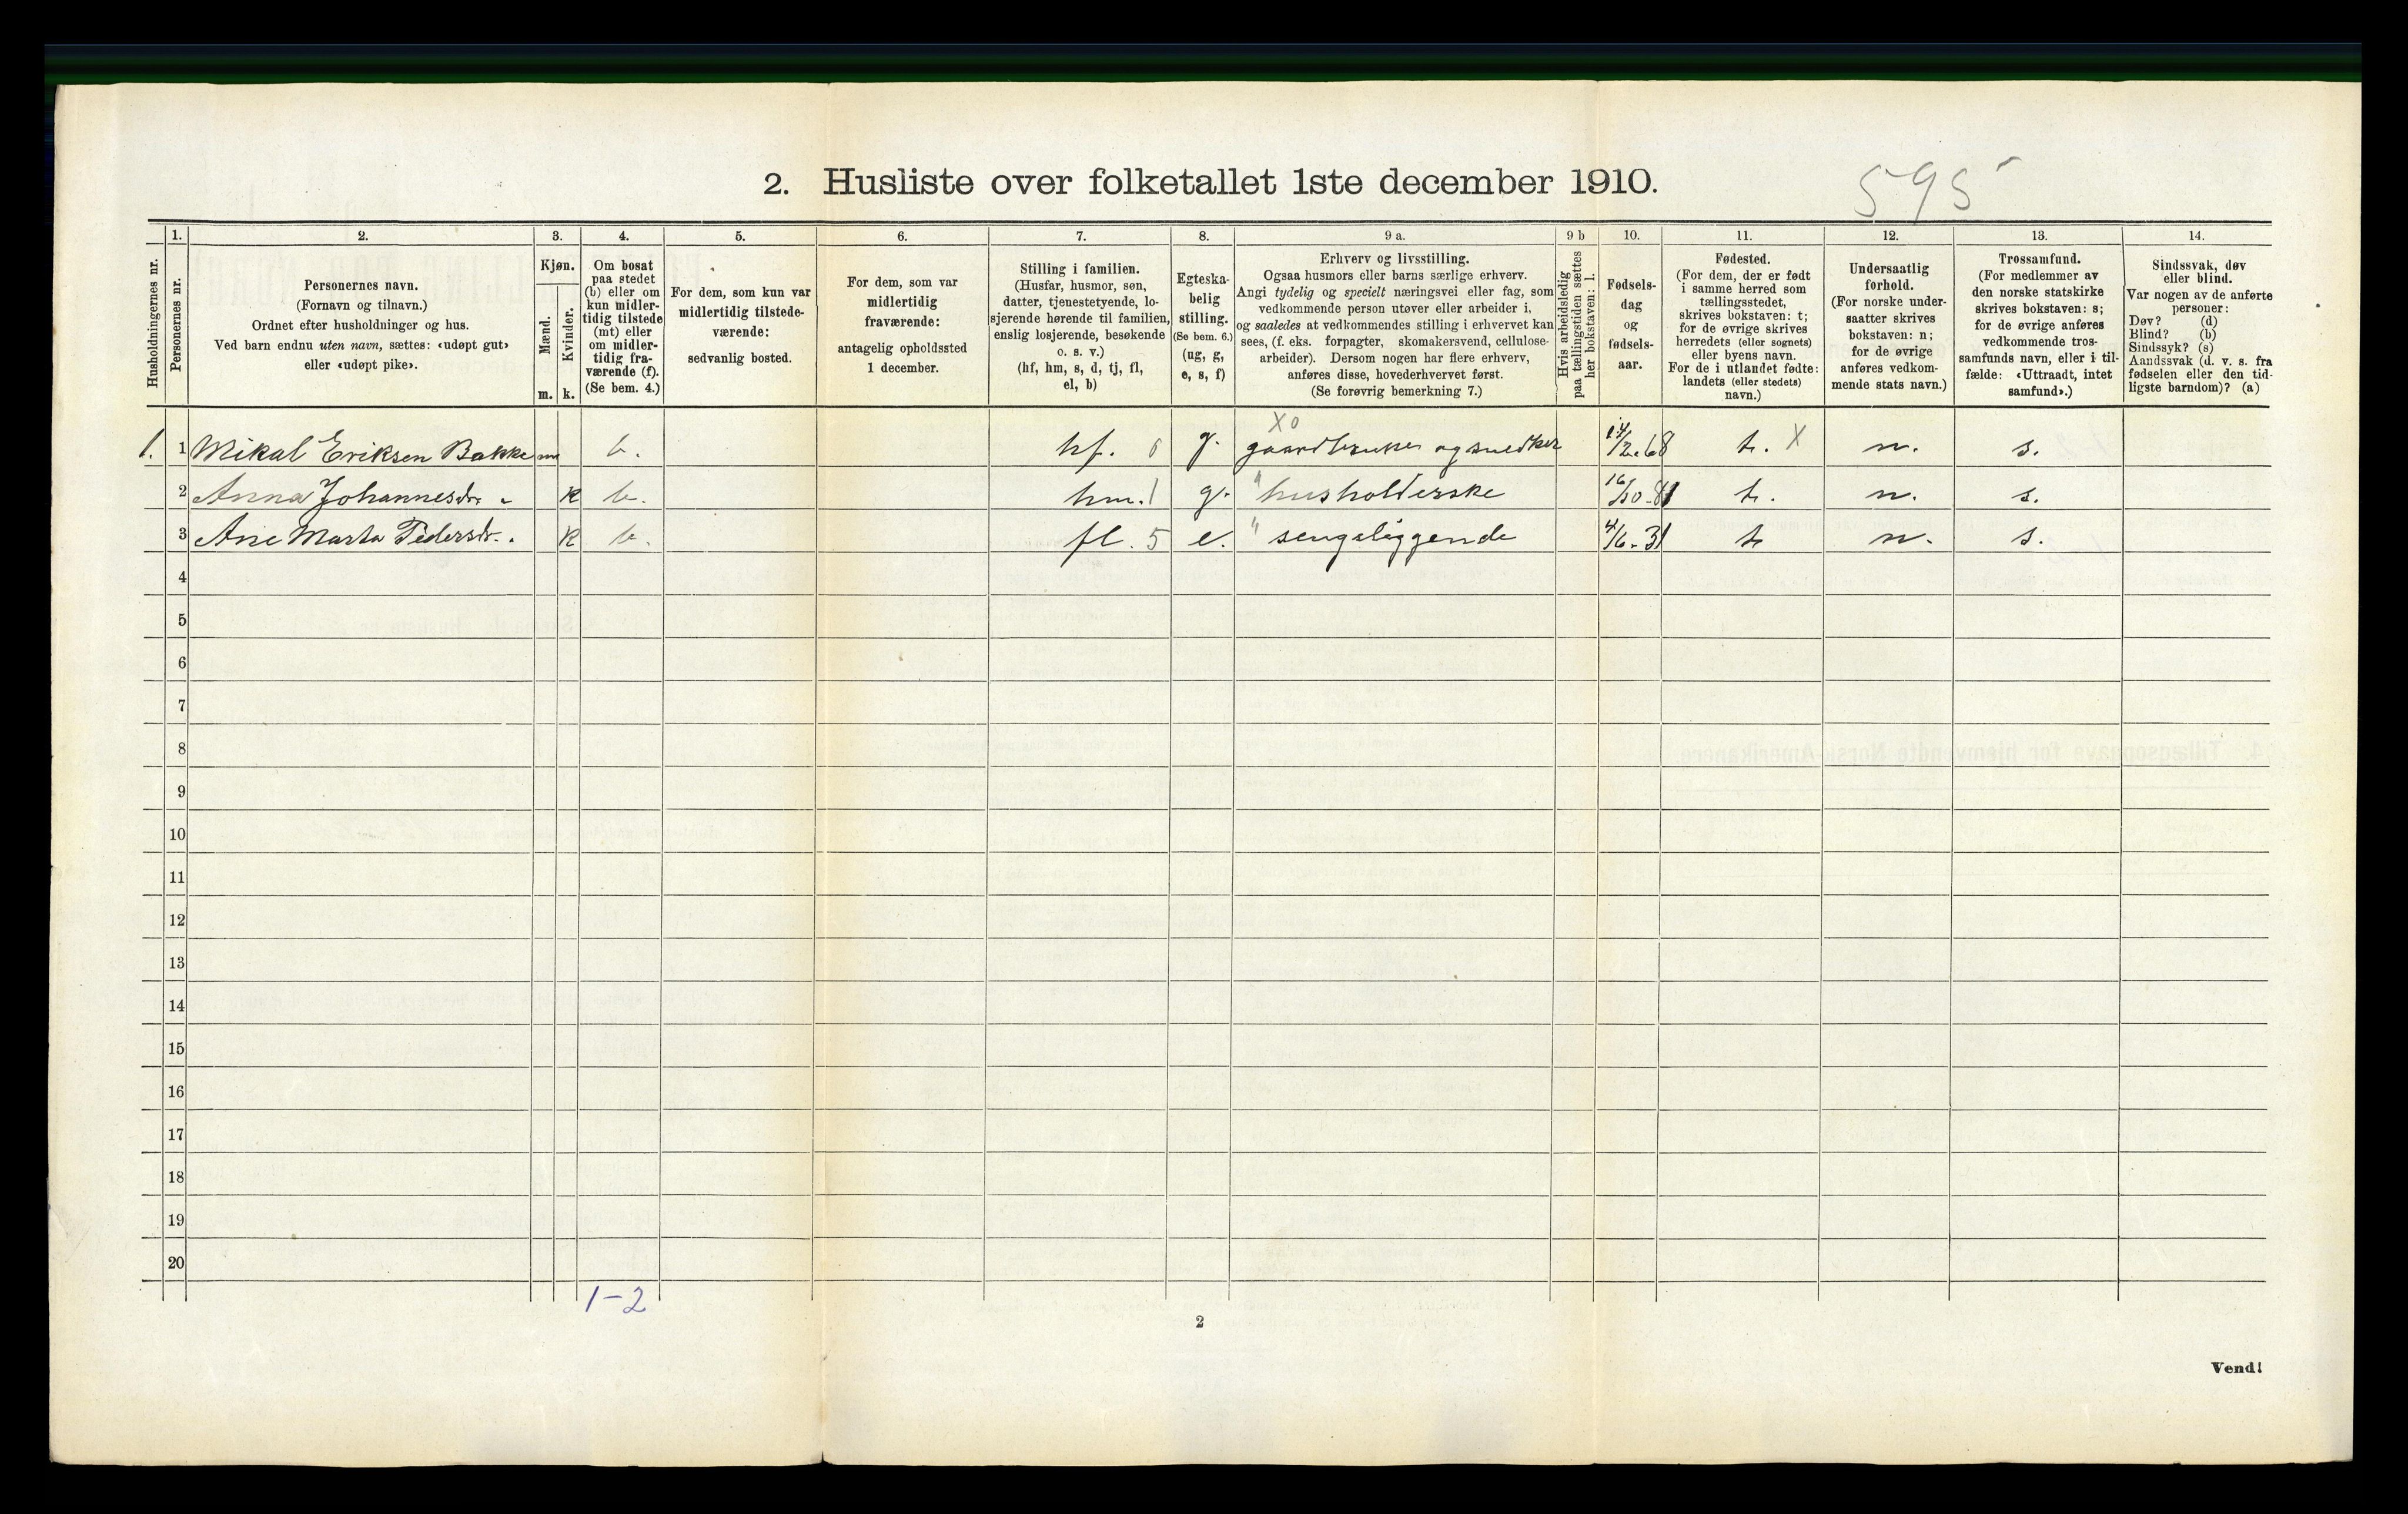 595
2. Husliste over folketallet 1ste december 1910.
Husholdningernes nr.
1.
Personernes nr.
2.
Personernes navn.
(Fornavn og tilnavn.)
Ordnet efter husholdninger og hus.
Ved barn endnu uten navn, sættes: «udøpt gut»
eller «udøpt pike».
3.
Kjøn.
Mænd.
Kvinder.
m.
k.
4.
Om bosat
paa stedet
(b) eller om
kun midler-
tidig tilstede
(mt) eller
om midler-
tidig fra-
værende (f).
(Se bem. 4.)
5.
For dem, som kun var
midlertidig tilstede-
værende:
sedvanlig bosted.
6.
For dem, som var
midlertidig
fraværende:
antagelig opholdssted
1 december.
7.
Stilling i familien.
(Husfar, husmor, søn,
datter, tjenestetyende, lo-
sjerende hørende til familien,
enslig losjerende, besøkende
o. s. v.)
(hf, hm, s, d, tj, fl,
el, b)
8.
Egteska-
belig
stilling.
(Se bem. 6.)
(ug, g,
e, s, f)
9 a.
Erhverv og livsstilling.
Ogsaa husmors eller barns særlige erhverv.
Angi tydelig og specielt næringsvei eller fag, som
vedkommende person utøver eller arbeider i,
og saaledes at vedkommendes stilling i erhvervet kan
sees, (f. eks. forpagter, skomakersvend, cellulose-
arbeider). Dersom nogen har flere erhverv,
anføres disse, hovederhvervet først.
(Se forøvrig bemerkning 7.)
9 b
Hvis arbeidsledig
paa tællingstiden sættes
her bokstaven: l.
10.
Fødsels-
dag
og
fødsels-
aar.
11.
Fødested.
(For dem, der er født
i samme herred som
tællingsstedet,
skrives bokstaven: t;
for de øvrige skrives
herredets (eller sognets)
eller byens navn.
For de i utlandet fødte:
landets (eller stedets)
navn.)
12.
Undersaatlig
forhold.
(For norske under-
saatter skrives
bokstaven: n;
for de øvrige
anføres vedkom-
mende stats navn.)
13.
Trossamfund.
(For medlemmer av
den norske statskirke
skrives bokstaven: s;
for de øvrige anføres
vedkommende tros-
samfunds navn, eller i til-
fælde: «Uttraadt, intet
samfund».)
14.
Sindssvak, døv
eller blind.
Var nogen av de anførte
personer:
Døv? (d)
Blind? (b)
Sindssyk? (s)
Aandssvak (d. v. s. fra
fødselen eller den tid-
ligste barndom)? (a)
X 0
1. 1 Mikal Eriksen Bakke m b. hf. 0 g. gaardbruker og snedker 14/2.68 t. X n. s.
2 Anna Johannesdr. " k b. hm. 1 g. " husholderske 16/10-81 t. n. s.
3 Ane Marta Pedersdr. " k b. fl. 5 e. " sengeliggende 4/6-31 t n. s.
4
5
6
7
8
9
10
11
12
13
14
15
16
17
18
19
20
1-2
2
Vend!